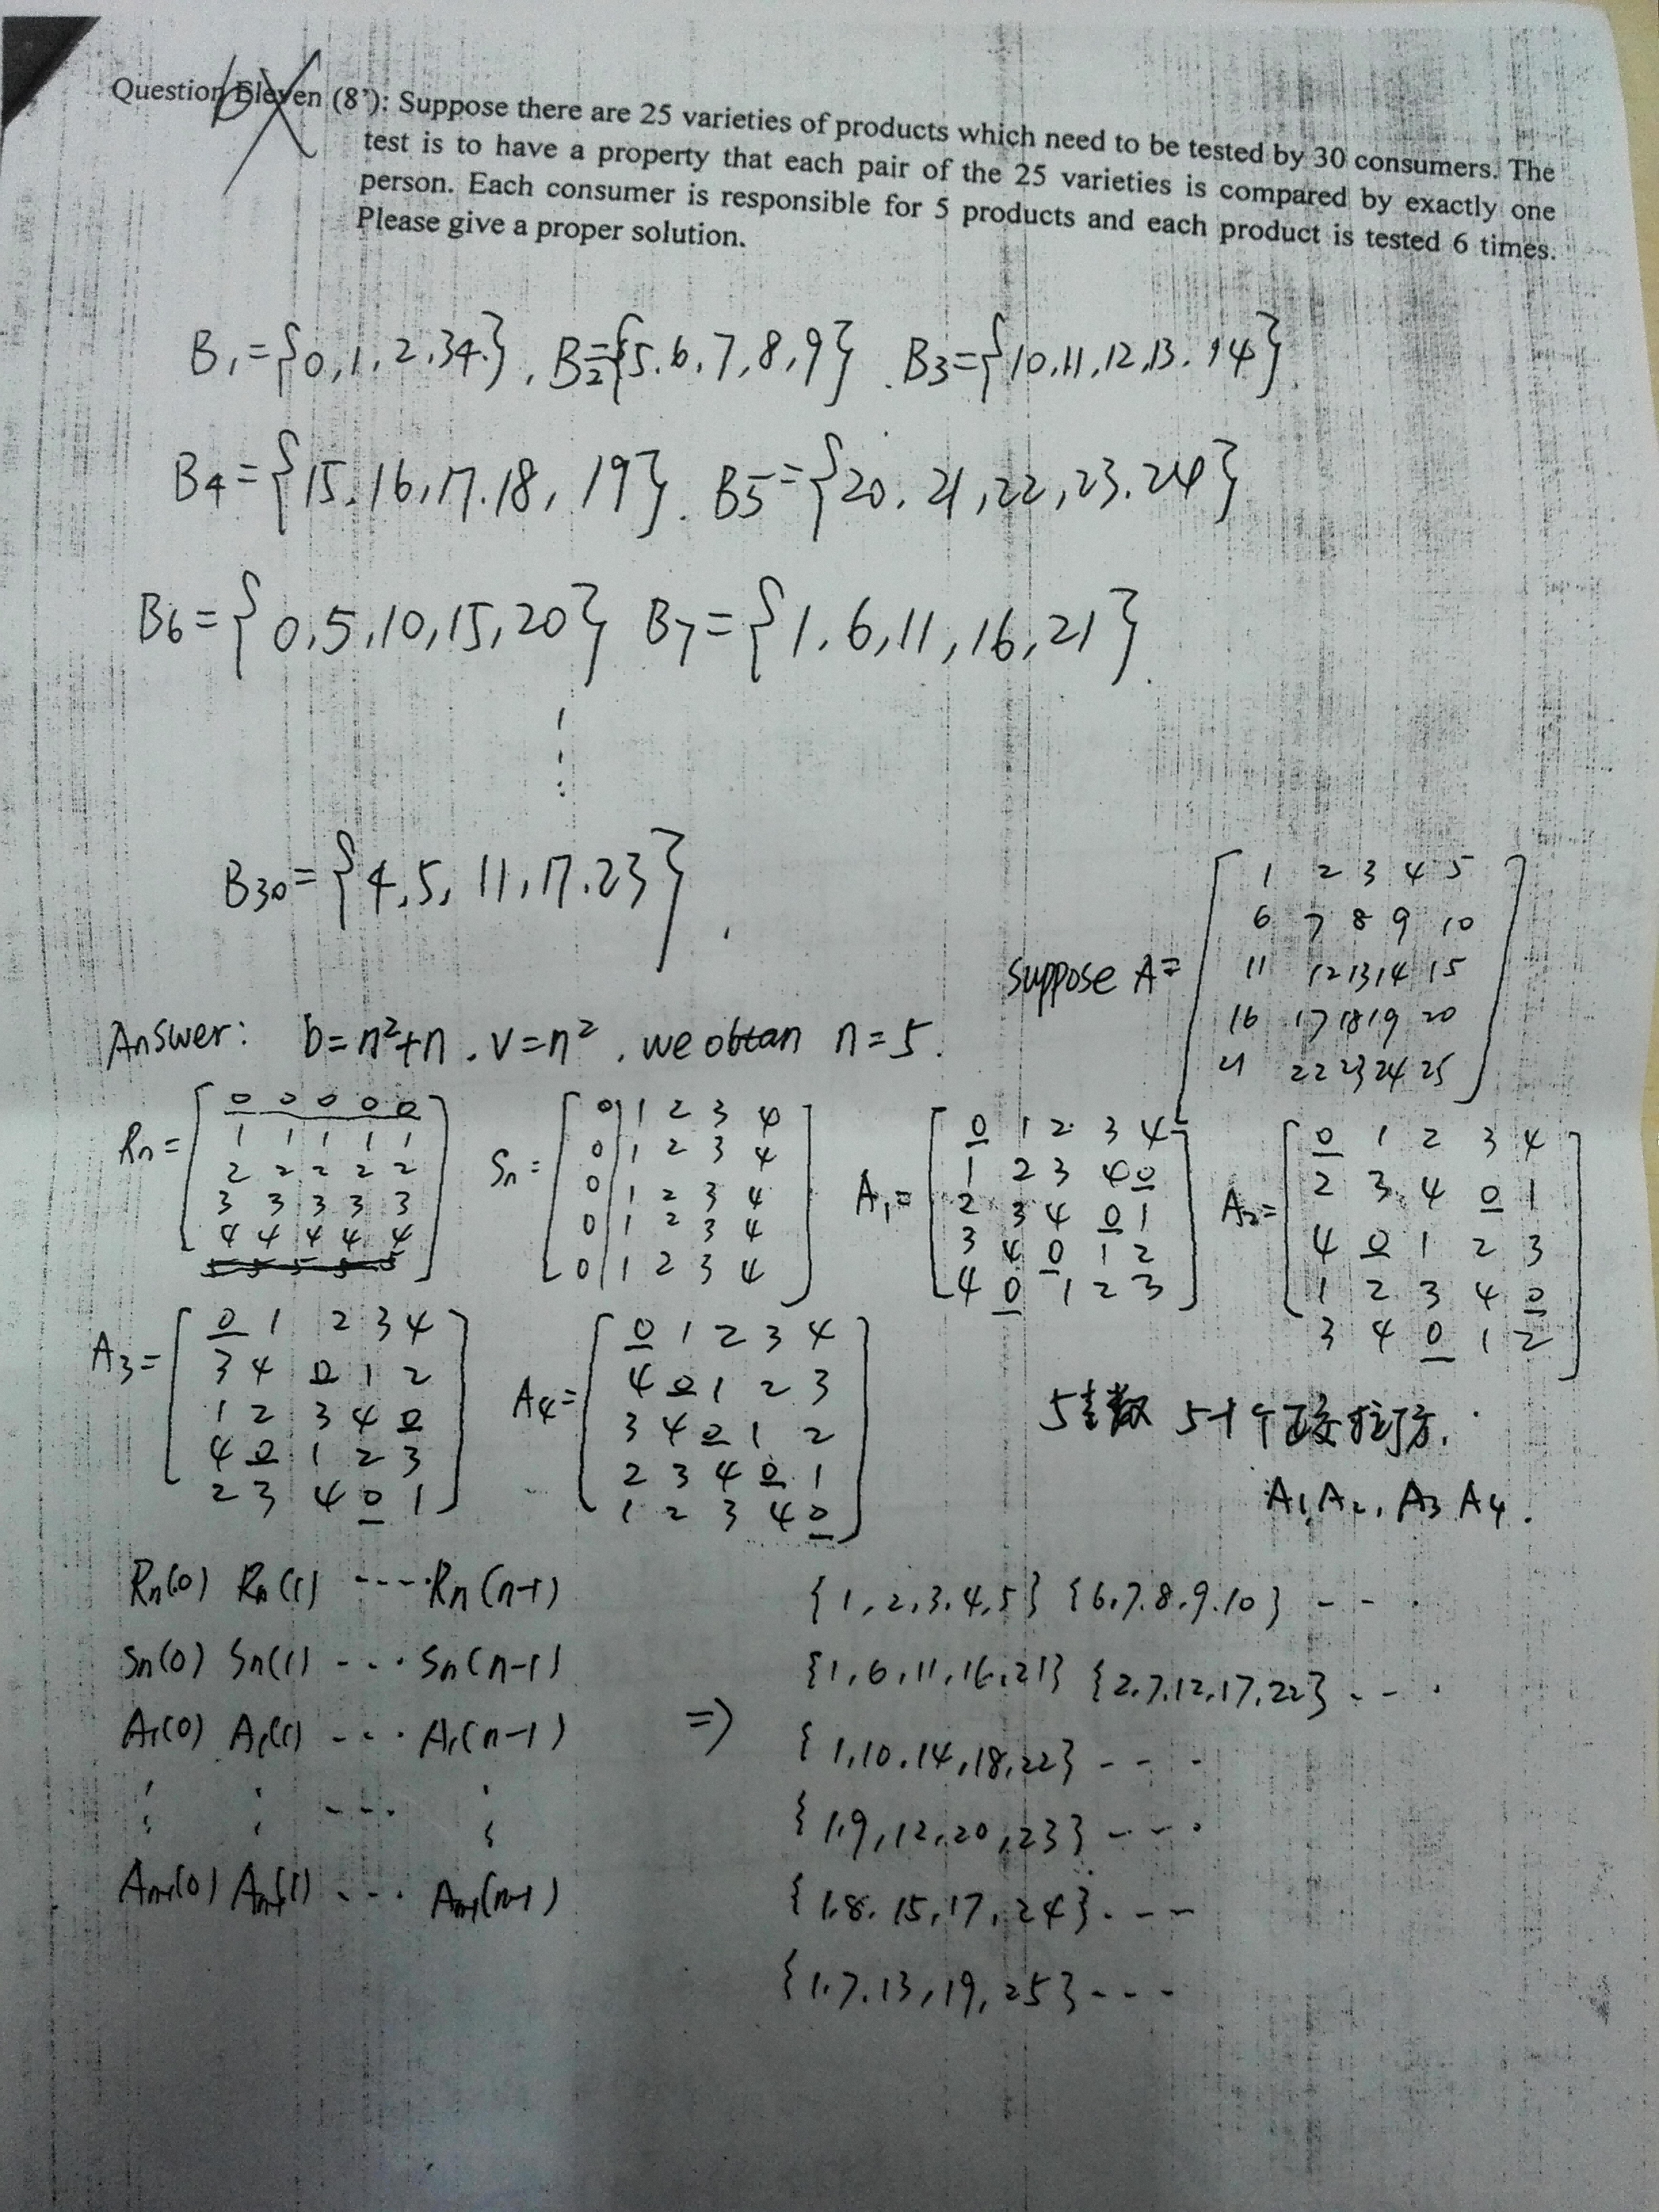 Question Eleven (8'): Suppose there are 25 varieties of products which need to be tested by 30 consumers. The
test is to have a property that each pair of the 25 varieties is compared by exactly one
person. Each consumer is responsible for 5 products and each product is tested 6 times.
Please give a proper solution.
B1={0,1,2,3,4}, B2={5,6,7,8,9}. B3={10,11,12,13,14}
B4={15,16,17,18,19}. B5={20,21,22,23,24}
B6={0,5,10,15,20} B7={1,6,11,16,21}.
⋮
B30={4,5,11,17,23}.
Suppose A=
1 2 3 4 5
6 7 8 9 10
11 12 13 14 15
16 17 18 19 20
21 22 23 24 25
Answer: b=n²+n. v=n², we obtan n=5.
Rn=
0 0 0 0 0
1 1 1 1 1
2 2 2 2 2
3 3 3 3 3
4 4 4 4 4
5 5 5 5 5
Sn=
0 1 2 3 4
0 1 2 3 4
0 1 2 3 4
0 1 2 3 4
0 1 2 3 4
A1=
0 1 2 3 4
1 2 3 4 0
2 3 4 0 1
3 4 0 1 2
4 0 1 2 3
A2=
0 1 2 3 4
2 3 4 0 1
4 0 1 2 3
1 2 3 4 0
3 4 0 1 2
A3=
0 1 2 3 4
3 4 0 1 2
1 2 3 4 0
4 0 1 2 3
2 3 4 0 1
A4=
0 1 2 3 4
4 0 1 2 3
3 4 0 1 2
2 3 4 0 1
1 2 3 4 0
5素数 5-1个正交拉丁方.
A1, A2, A3 A4.
Rn(0) Rn(1) ---- Rn(n-1)
Sn(0) Sn(1) --- Sn(n-1)
A1(0) A1(1) --- A1(n-1)
⋮ ⋮ --- ⋮
An-1(0) An-1(1) --- An-1(n-1)
=>
{1,2,3,4,5} {6,7,8,9,10} ---
{1,6,11,16,21} {2,7,12,17,22} ---
{1,10,14,18,22} ---
{1,9,12,20,23} ---
{1,8,15,17,24} ---
{1,7,13,19,25} ---